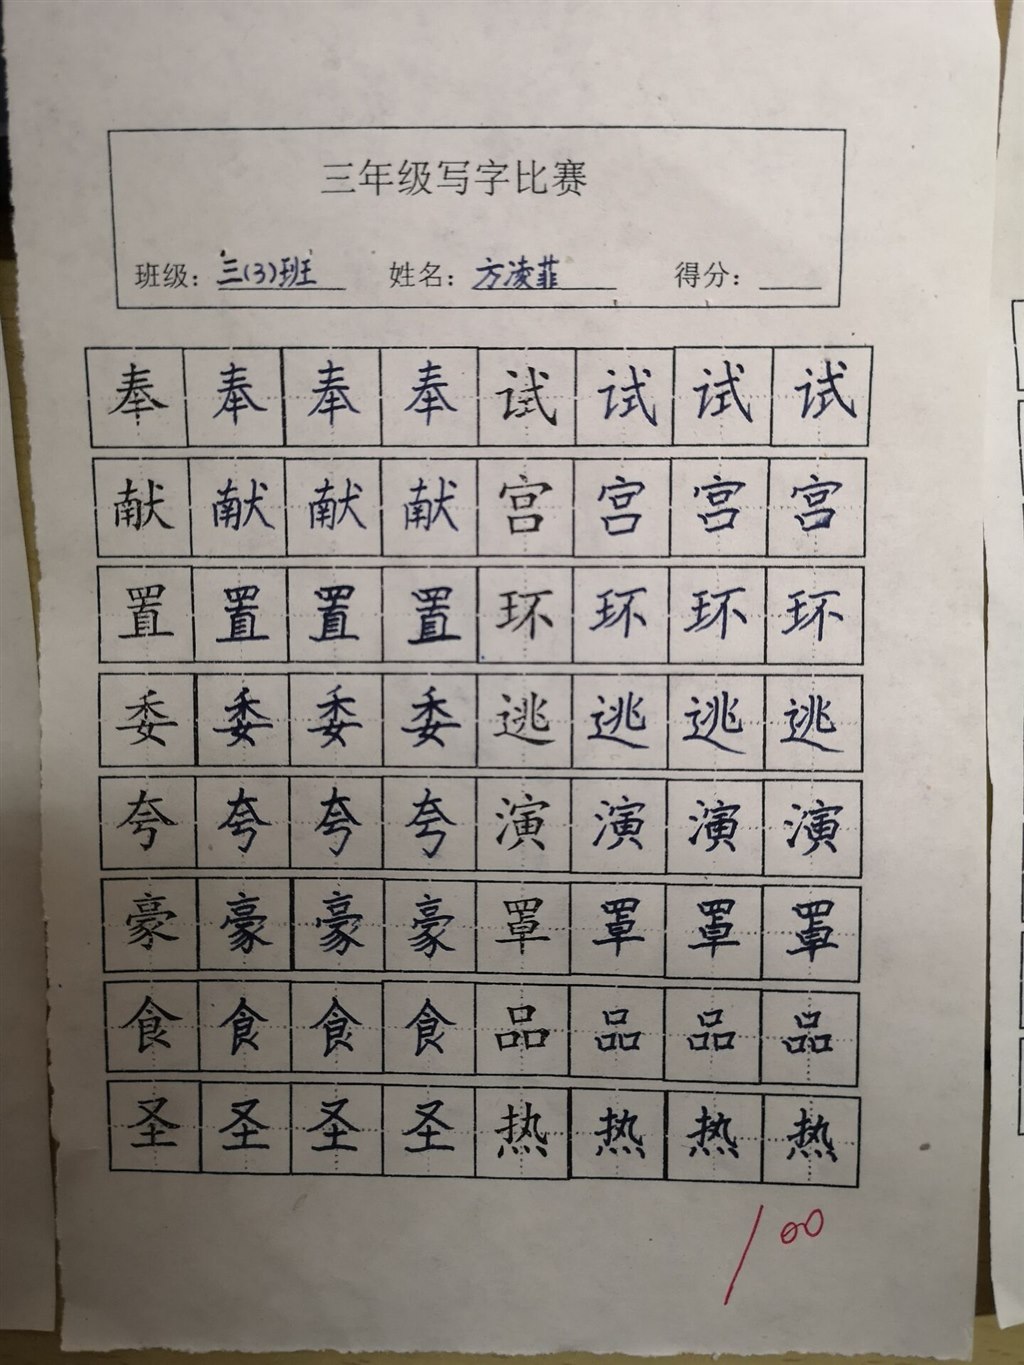 三年级写字比赛
班级：三(3)班 姓名：方凌菲 得分：
奉奉奉奉试试试试
献献献献宫宫宫宫
置置置置环环环环
委委委委逃逃逃逃
夸夸夸夸演演演演
豪豪豪豪罩罩罩罩
食食食食品品品品
圣圣圣圣热热热热
100